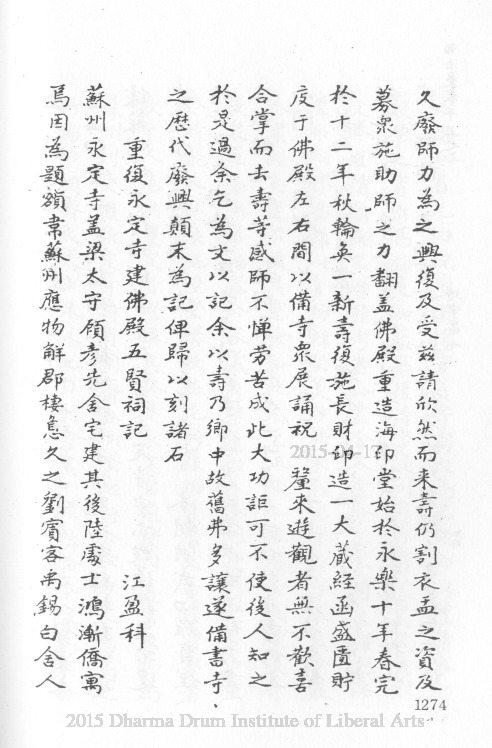 久廢師力為之興復及受茲請欣然而来壽仍割衣盂之資及
募衆施助師之力翻盖佛殿重造海印堂始於永樂十年春完
於十二年秋輪奐一新壽復施長財印造一大藏經函盛匱貯
庋于佛殿左右間以備寺衆展誦祝釐来遊觀者無不歡喜
合掌而去壽等感師不憚劳苦成此大功詎可不使後人知之
於是過余乞為文以記余以壽乃鄉中故舊弗多讓遂備書寺
之歷代廢興顛末為記俾歸以刻諸石
重復永定寺建佛殿五賢祠記
江盈科
蘇州永定寺盖梁太守顧彦先舍宅建其後陸處士鴻漸僑寓
焉因為題額韋蘇州應物解郡棲息久之劉賓客禹錫白舍人
2015-04-17
1274
2015 Dharma Drum Institute of Liberal Arts